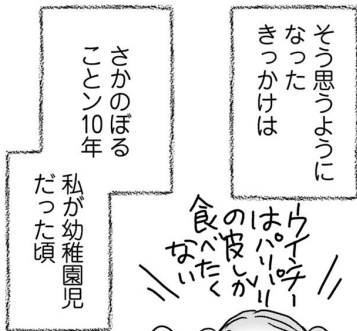 そう思うように
なった
きっかけは
さかのぼる
ことン10年
私が幼稚園児
だった頃
ウインナー
はパリパリ
の皮しか
食べたく
ない